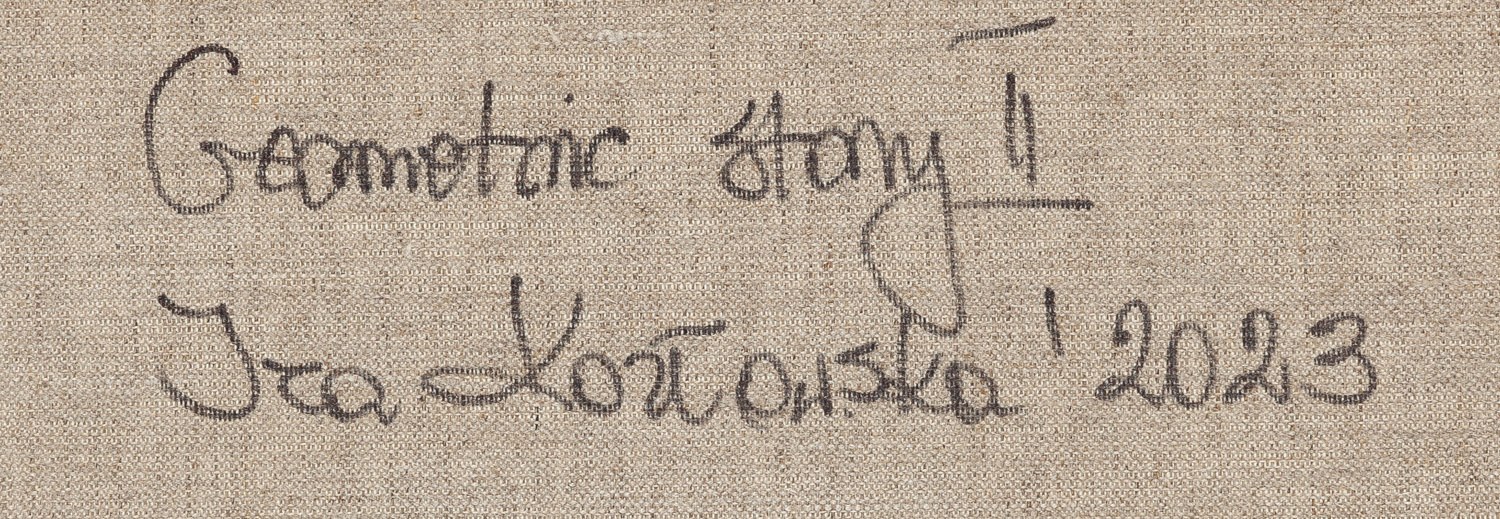 Geometric story II
Iza Kozłowska '2023